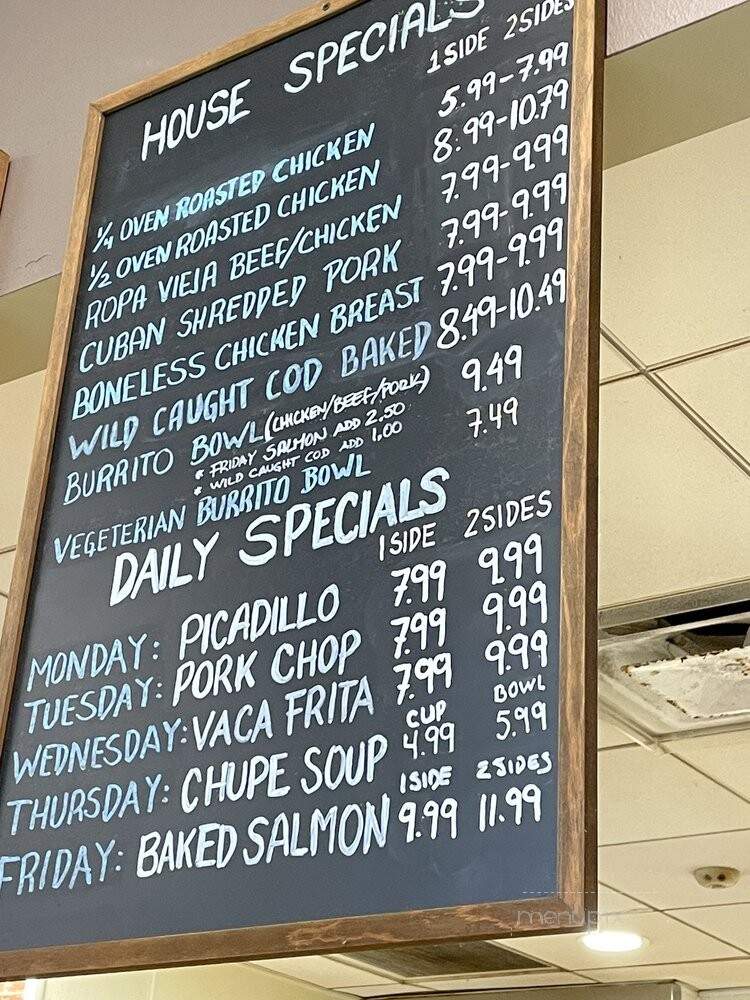 HOUSE SPECIALS
1 SIDE 2 SIDES
1/4 OVEN ROASTED CHICKEN 5.99-7.99
1/2 OVEN ROASTED CHICKEN 8.99-10.79
ROPA VIEJA BEEF/CHICKEN 7.99-9.99
CUBAN SHREDDED PORK 7.99-9.99
BONELESS CHICKEN BREAST 7.99-9.99
WILD CAUGHT COD BAKED 8.49-10.49
BURRITO BOWL (CHICKEN/BEEF/PORK) 9.49
* FRIDAY SALMON ADD 2.50
* WILD CAUGHT COD ADD 1.00
VEGETERIAN BURRITO BOWL 7.49
DAILY SPECIALS
1 SIDE 2 SIDES
MONDAY: PICADILLO 7.99 9.99
TUESDAY: PORK CHOP 7.99 9.99
WEDNESDAY: VACA FRITA 7.99 9.99
CUP BOWL
THURSDAY: CHUPE SOUP 4.99 5.99
1 SIDE 2 SIDES
FRIDAY: BAKED SALMON 9.99 11.99
menupix